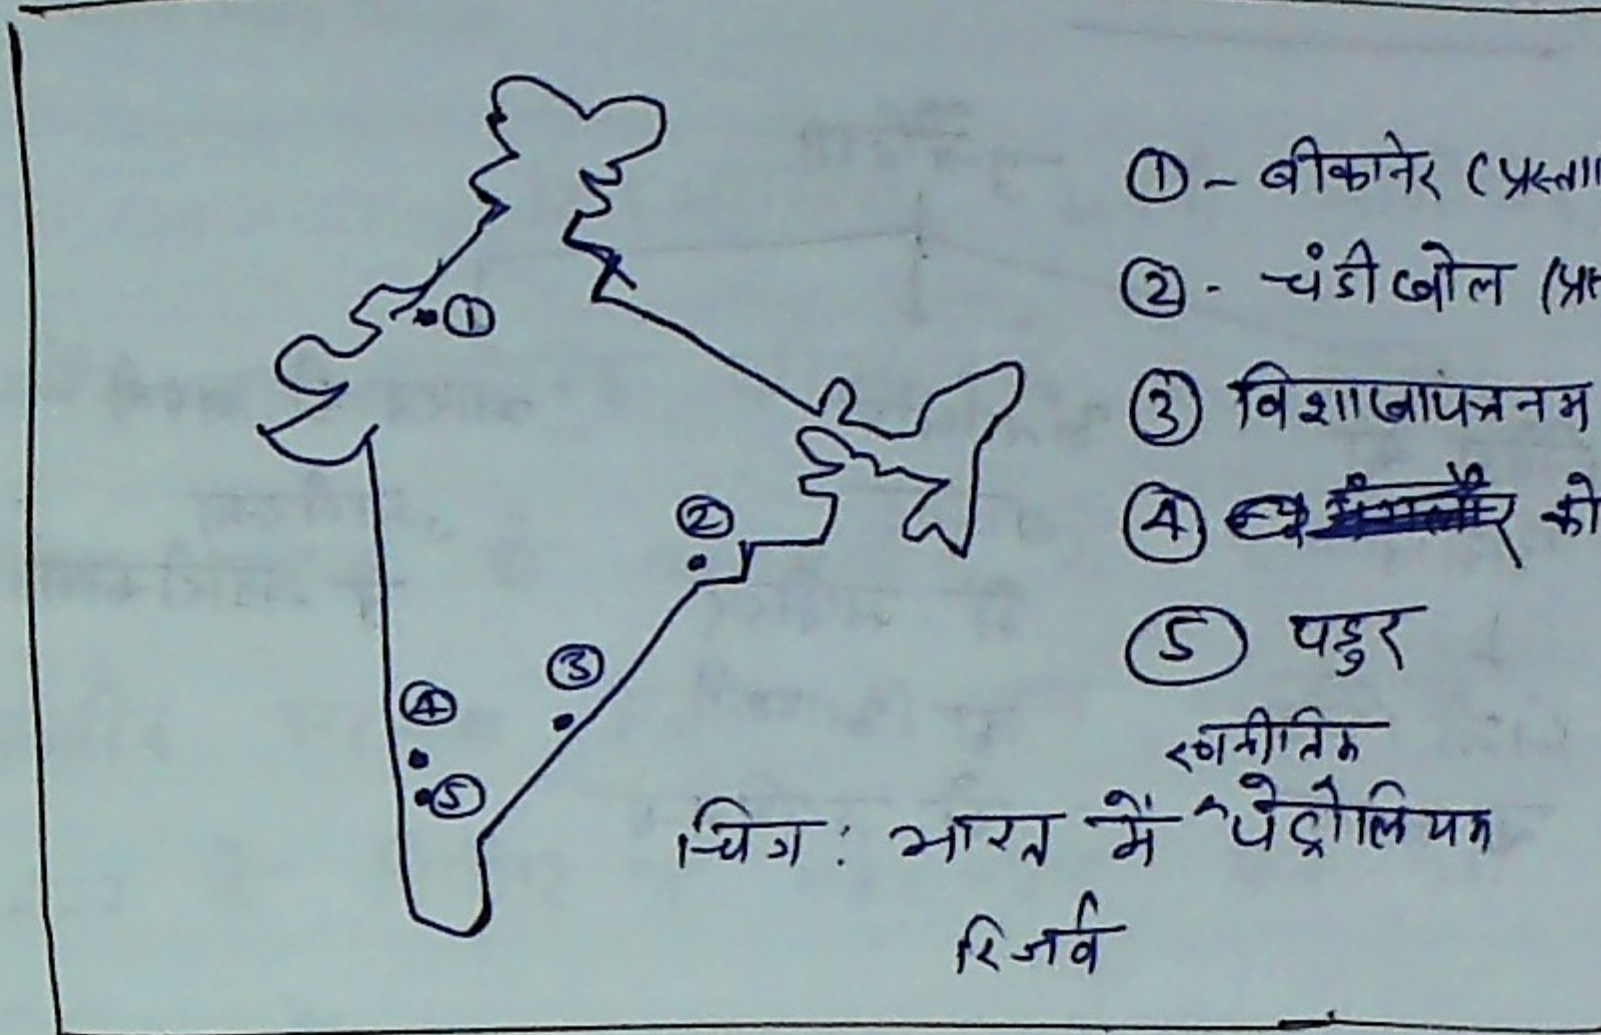 ① - बीकानेर (प्रस्ता
② - चंडीखोल (प्रस
③ विशाखापत्तनम
④ को
⑤ पडुर
चित्र: भारत में रणनीतिक पेट्रोलियम
रिजर्व
①
②
③
④
⑤